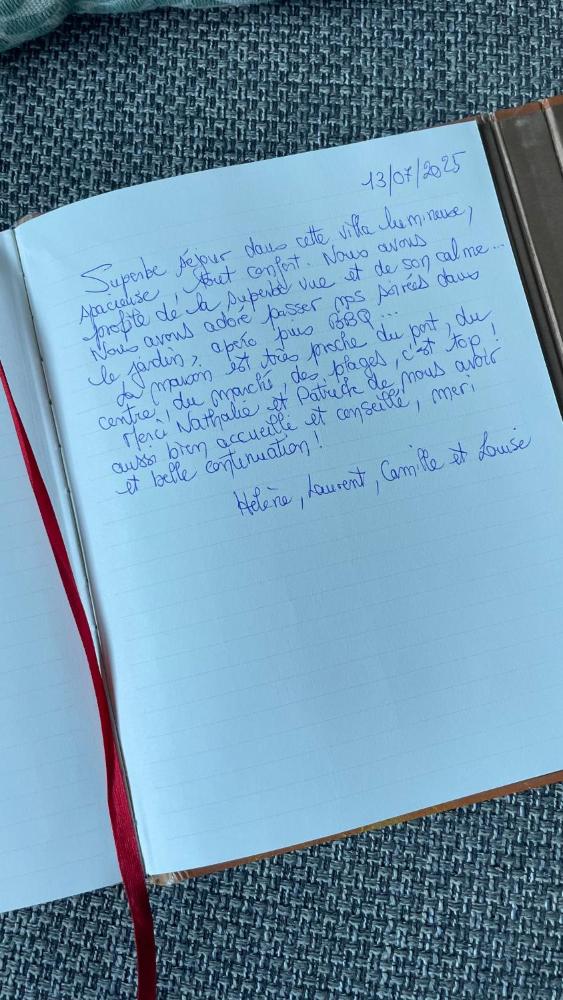 13/07/2025
Superbe séjour dans cette villa lumineuse,
spacieuse, tout confort. Nous avons
profité de la superbe vue et de son calme...
Nous avons adoré passer nos soirées dans
le jardin, apéro puis BBQ...
La maison est très proche du port, du
centre, du marché, des plages, c'est top !
Merci Nathalie et Patrick de nous avoir
aussi bien accueilli et conseillé, merci
et belle continuation !
Hélène, Laurent, Camille et Louise